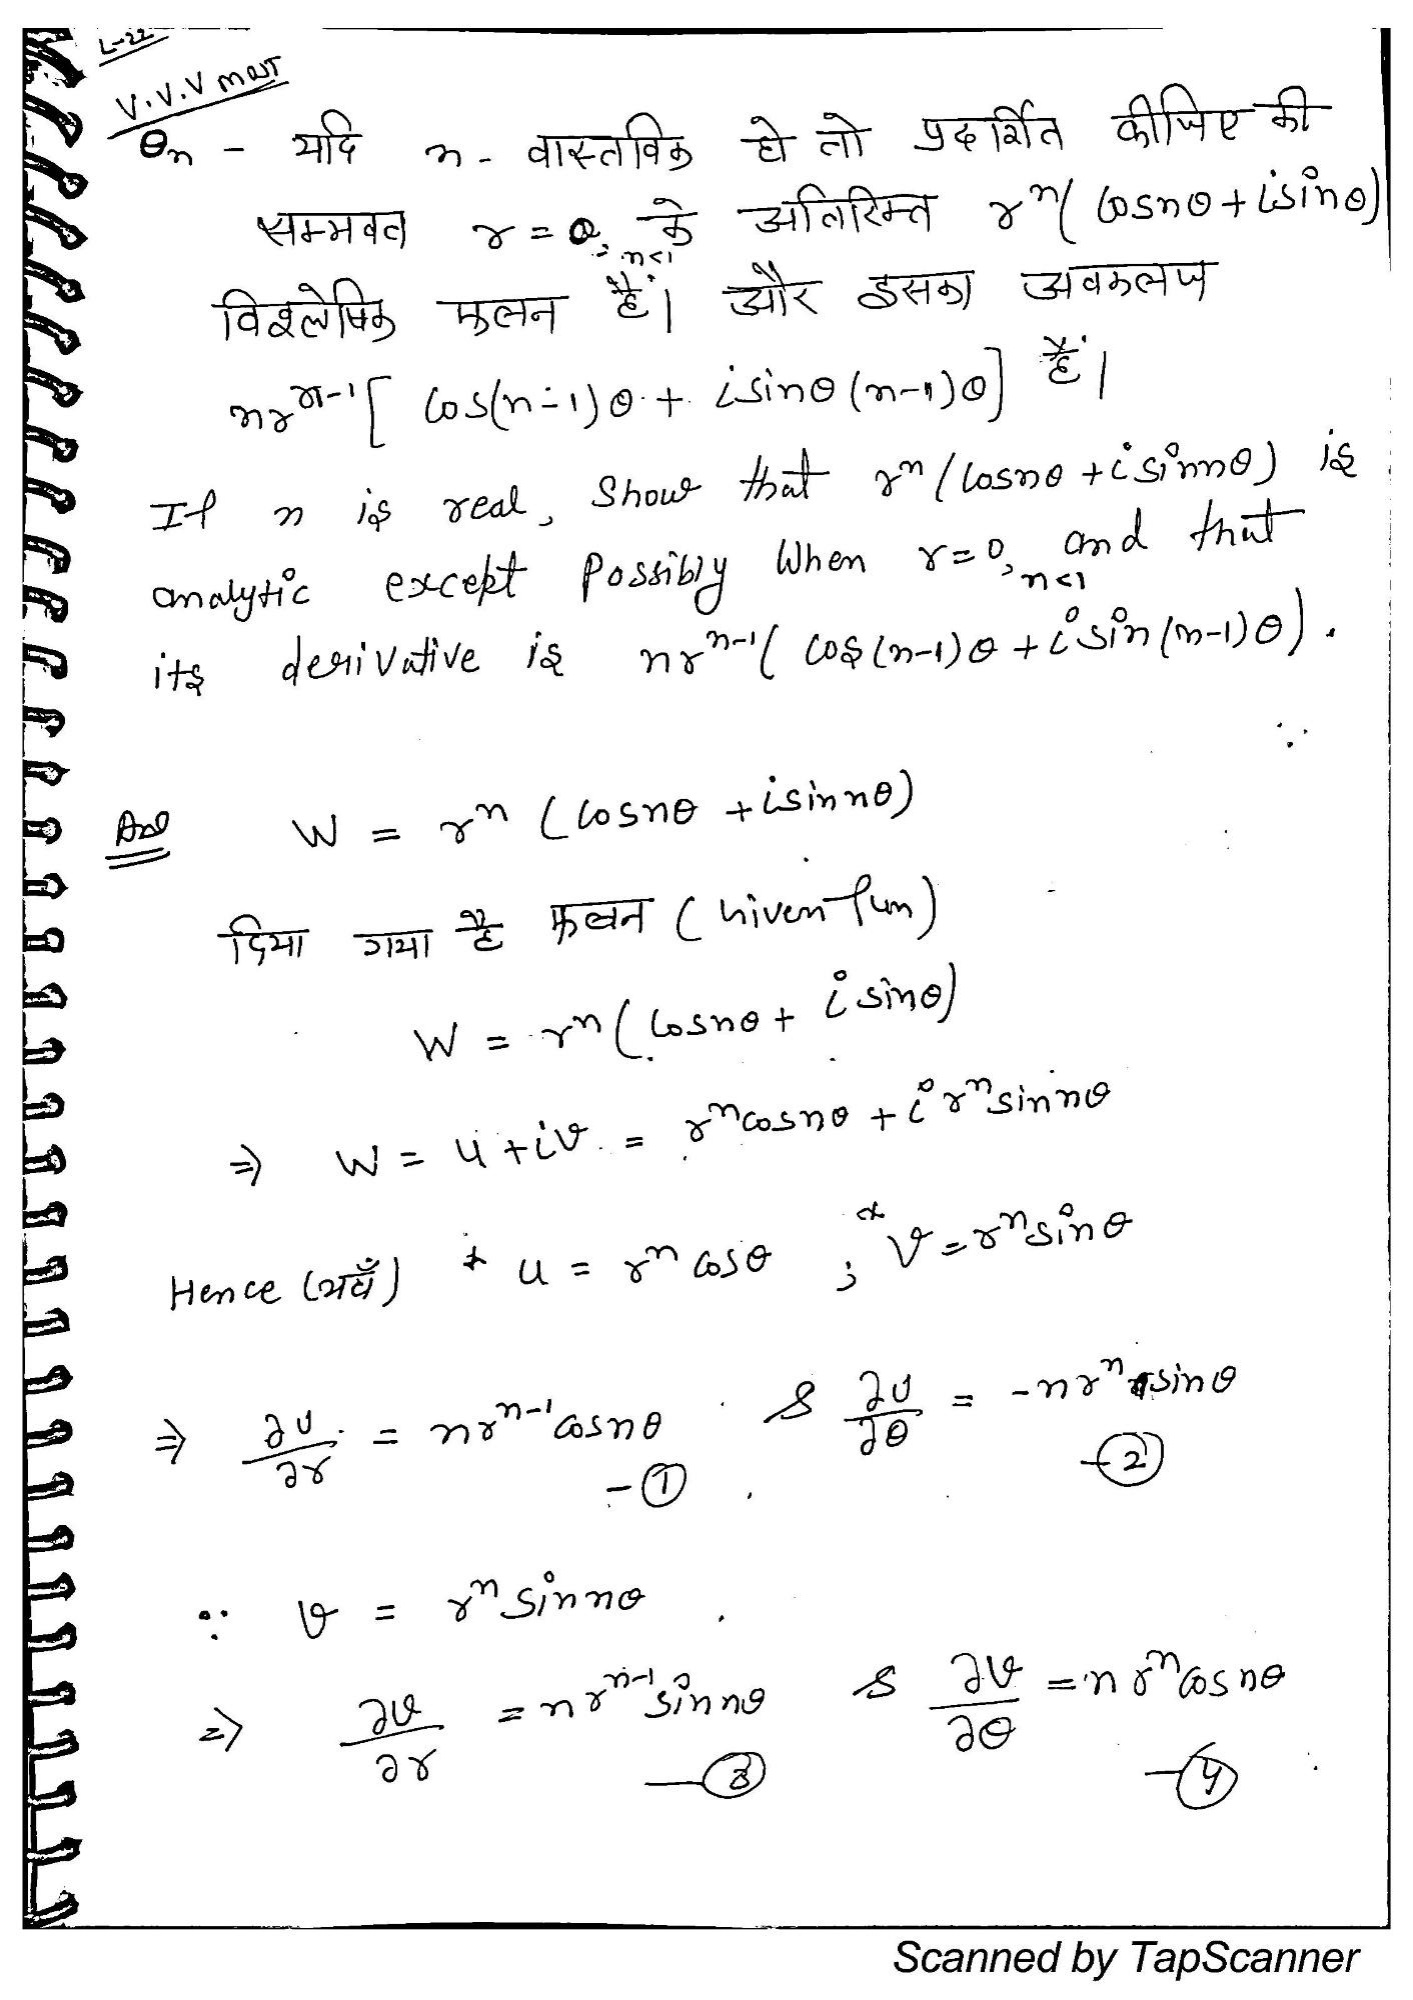 L-22
V.V.V most
Qn - यदि n - वास्तविक हो तो प्रदर्शित कीजिए की
सम्भवत r = 0, n<1 के अतिरिक्त r^n (cosnθ + isinθ)
विश्लेषिक फलन हैं। और इसका अवकलज
nr^n-1 [ cos(n-1)θ + isinθ (n-1)θ] हैं।
If n is real, Show that r^n (cosnθ + isinnθ) is
analytic except Possibly When r=0, n<1 and that
its derivative is nr^n-1 ( cos(n-1)θ + isin(n-1)θ).
Ans W = r^n (cosnθ + isinnθ)
दिया गया है फलन (Given fun)
W = r^n (cosnθ + i sinθ)
⇒ W = u + iv = r^n cosnθ + i r^n sinnθ
Hence (अर्थ) * u = r^n cosθ ; * v = r^n sinθ
⇒ ∂u/∂r = nr^n-1 cosnθ - ① & ∂u/∂θ = -nr^n sinθ - ②
∵ v = r^n sinnθ
⇒ ∂v/∂r = nr^n-1 sinnθ - ③ & ∂v/∂θ = n r^n cosnθ - ④
Scanned by TapScanner